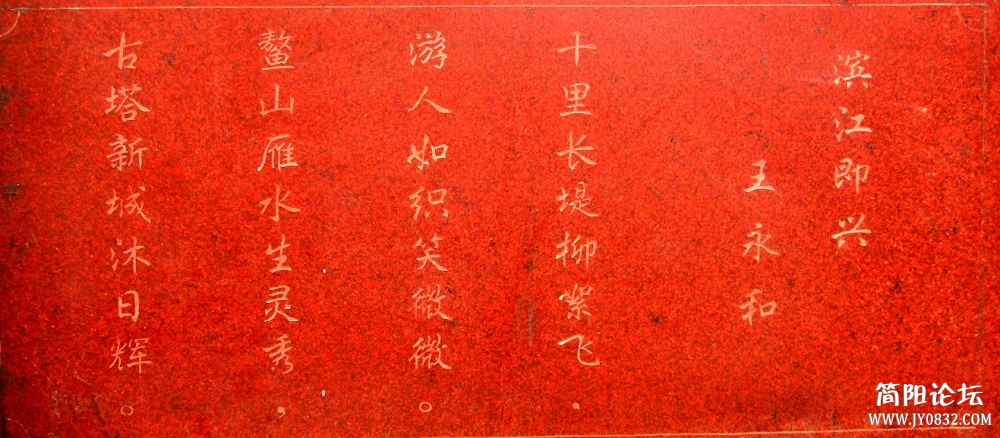 滨江即兴
王永和
十里长堤柳絮飞，
游人如织笑微微。
鳌山雁水生灵秀，
古塔新城沐日辉。
简阳论坛
WWW.JY0832.COM